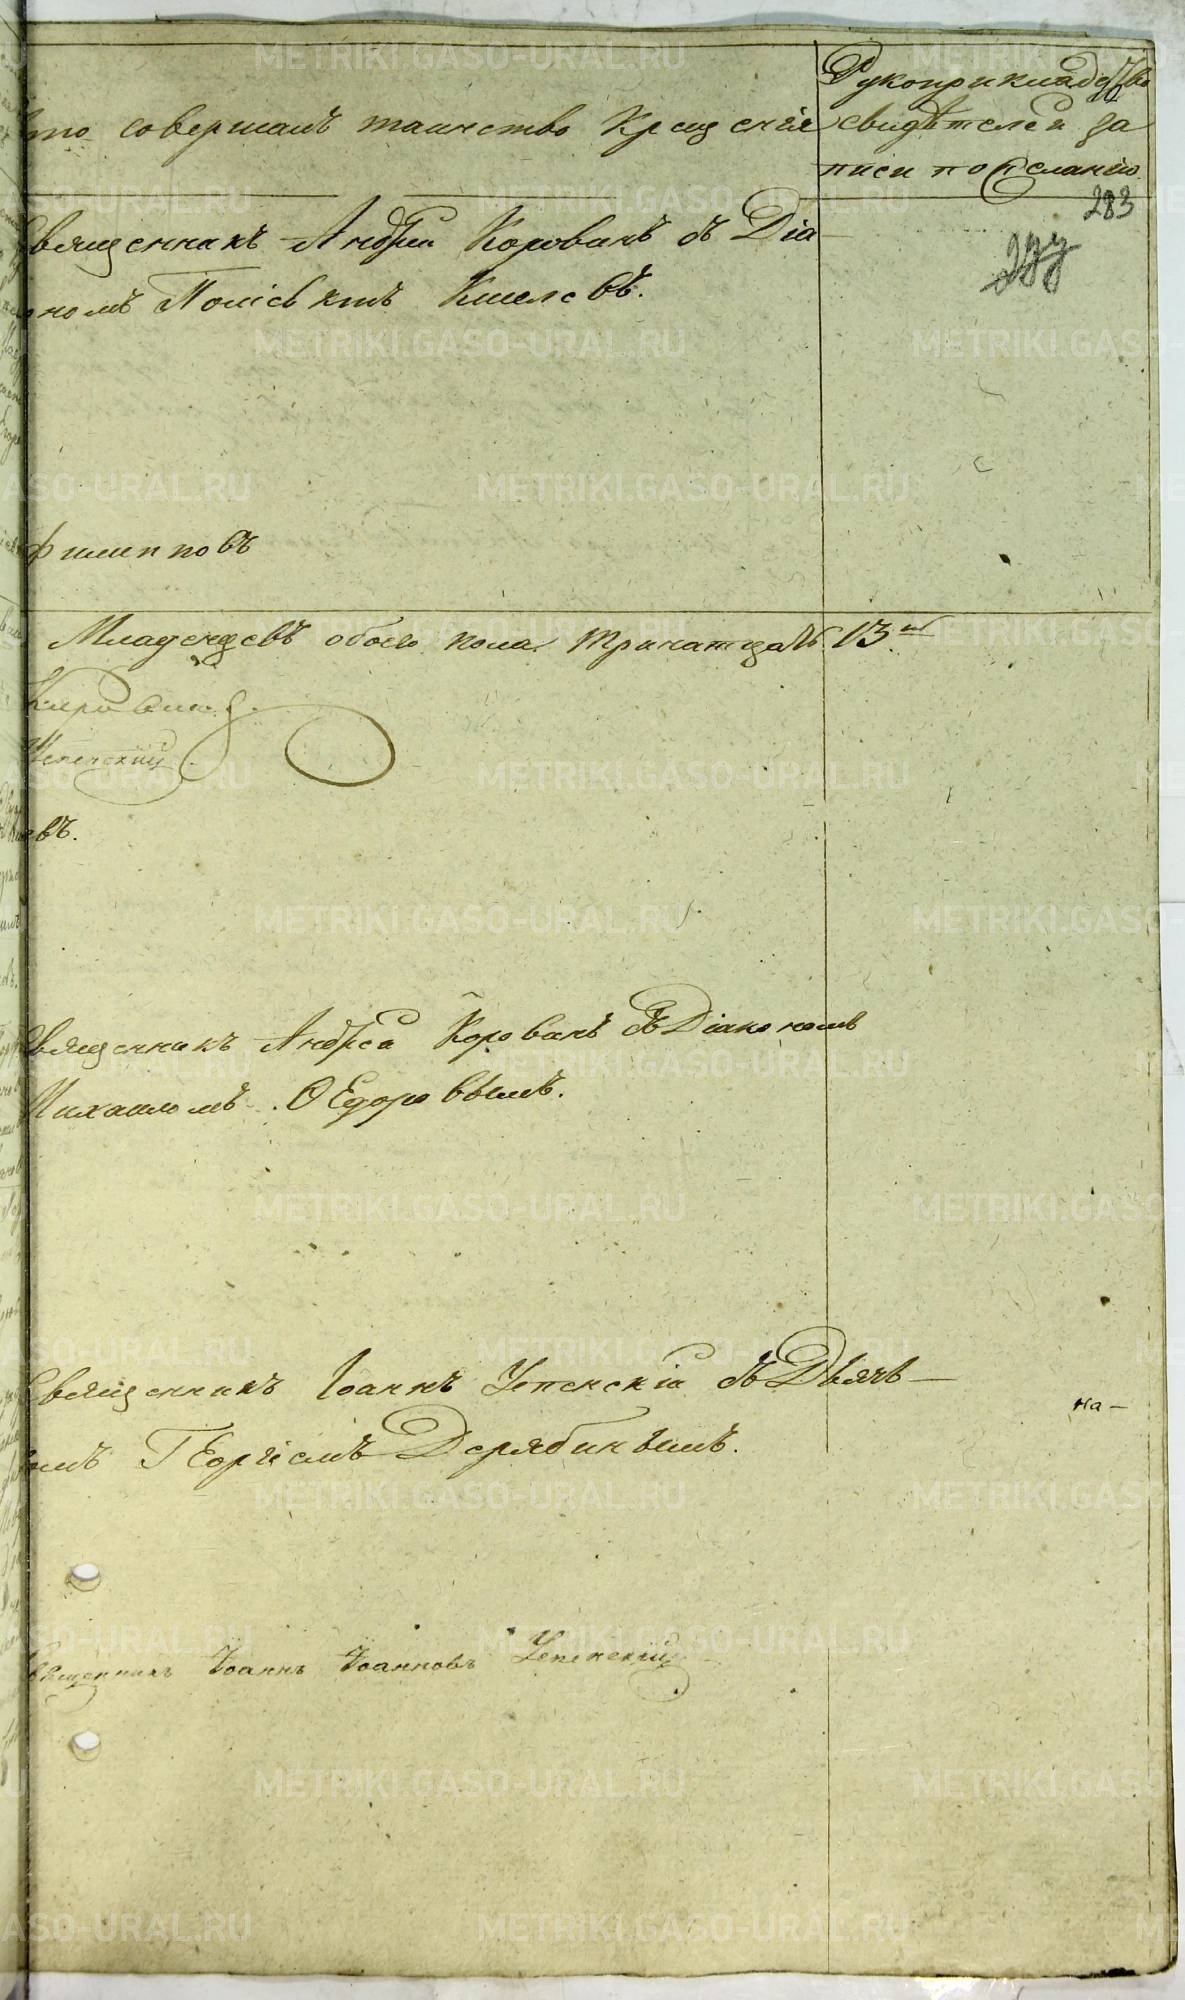 Кто совершалъ таинство Крещенія
Рукоприкладство
свидѣтелей за
писи по желанію
283
Священникъ Андрей Корованъ съ Діа
кономъ Киселевъ.
Филипповъ
Младенцевъ обоего пола тринатцать 13.
Успенскій
евъ.
Священникъ Андрей Корованъ съ Діакономъ
Михаиломъ Ѳедоровымъ.
Священникъ Іоаннъ Успенскій съ Дьячь-
комъ Георгіемъ Дерябинымъ.
на-
Священникъ Іоаннъ Іоанновъ Успенскій
METRIKI.GASO-URAL.RU